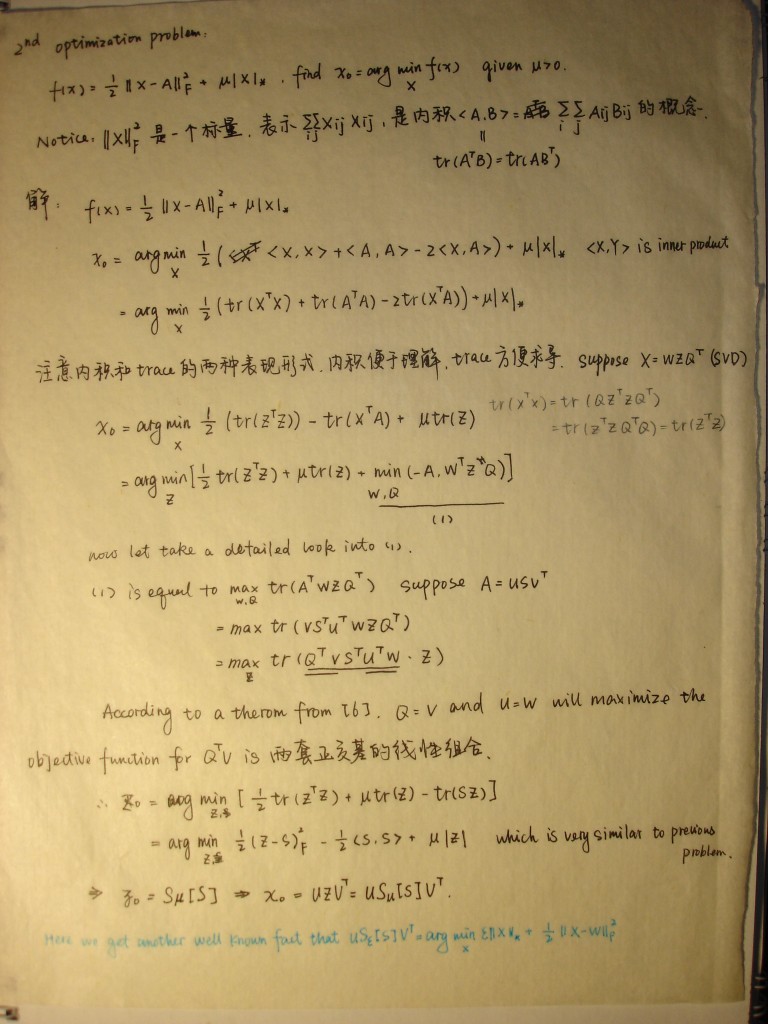 2nd optimization problem:
f(x) = ½ ‖X-A‖²_F + μ|X|* . find x₀ = arg min_X f(x) given μ>0.
Notice: ‖X‖²_F 是一个标量, 表示 ∑∑_ij Xij Xij , 是内积 <A.B> = ∑_i ∑_j Aij Bij 的概念.
‖
tr(AᵀB) = tr(ABᵀ)
解: f(x) = ½ ‖X-A‖²_F + μ|X|*
x₀ = argmin_X ½ ( <X,X> + <A,A> - 2<X,A>) + μ|X|* <X,Y> is inner product
= arg min_X ½ (tr(XᵀX) + tr(AᵀA) - 2tr(XᵀA)) + μ|X|*
注意内积和trace的两种表现形式. 内积便于理解, trace方便求导. suppose X = WZQᵀ (SVD)
x₀ = argmin_X ½ (tr(ZᵀZ)) - tr(XᵀA) + μtr(Z) tr(XᵀX) = tr(QZᵀZQᵀ)
= tr(ZᵀZQᵀQ) = tr(ZᵀZ)
= argmin_Z [½ tr(ZᵀZ) + μtr(Z) + min_W,Q (-A, WᵀZQ)]
(1)
now let take a detailed look into (1).
(1) is equal to max_W,Q tr(AᵀWZQᵀ) suppose A = USVᵀ
= max tr(VSᵀUᵀWZQᵀ)
= max_Z tr(QᵀVSᵀUᵀW · Z)
According to a therom from [6]. Q = V and U = W will maximize the
objective function for QᵀV is 两套正交基的线性组合.
∴ Z₀ = arg min_Z [½ tr(ZᵀZ) + μtr(Z) - tr(SZ)]
= arg min_Z ½ (Z-S)²_F - ½ <S,S> + μ|Z| which is very similar to previous
problem.
⇒ z₀ = Sμ[S] ⇒ x₀ = UZVᵀ = USμ[S]Vᵀ.
Here we get another well known fact that USε[S]Vᵀ = arg min_X ε‖X‖* + ½ ‖X-W‖²_F